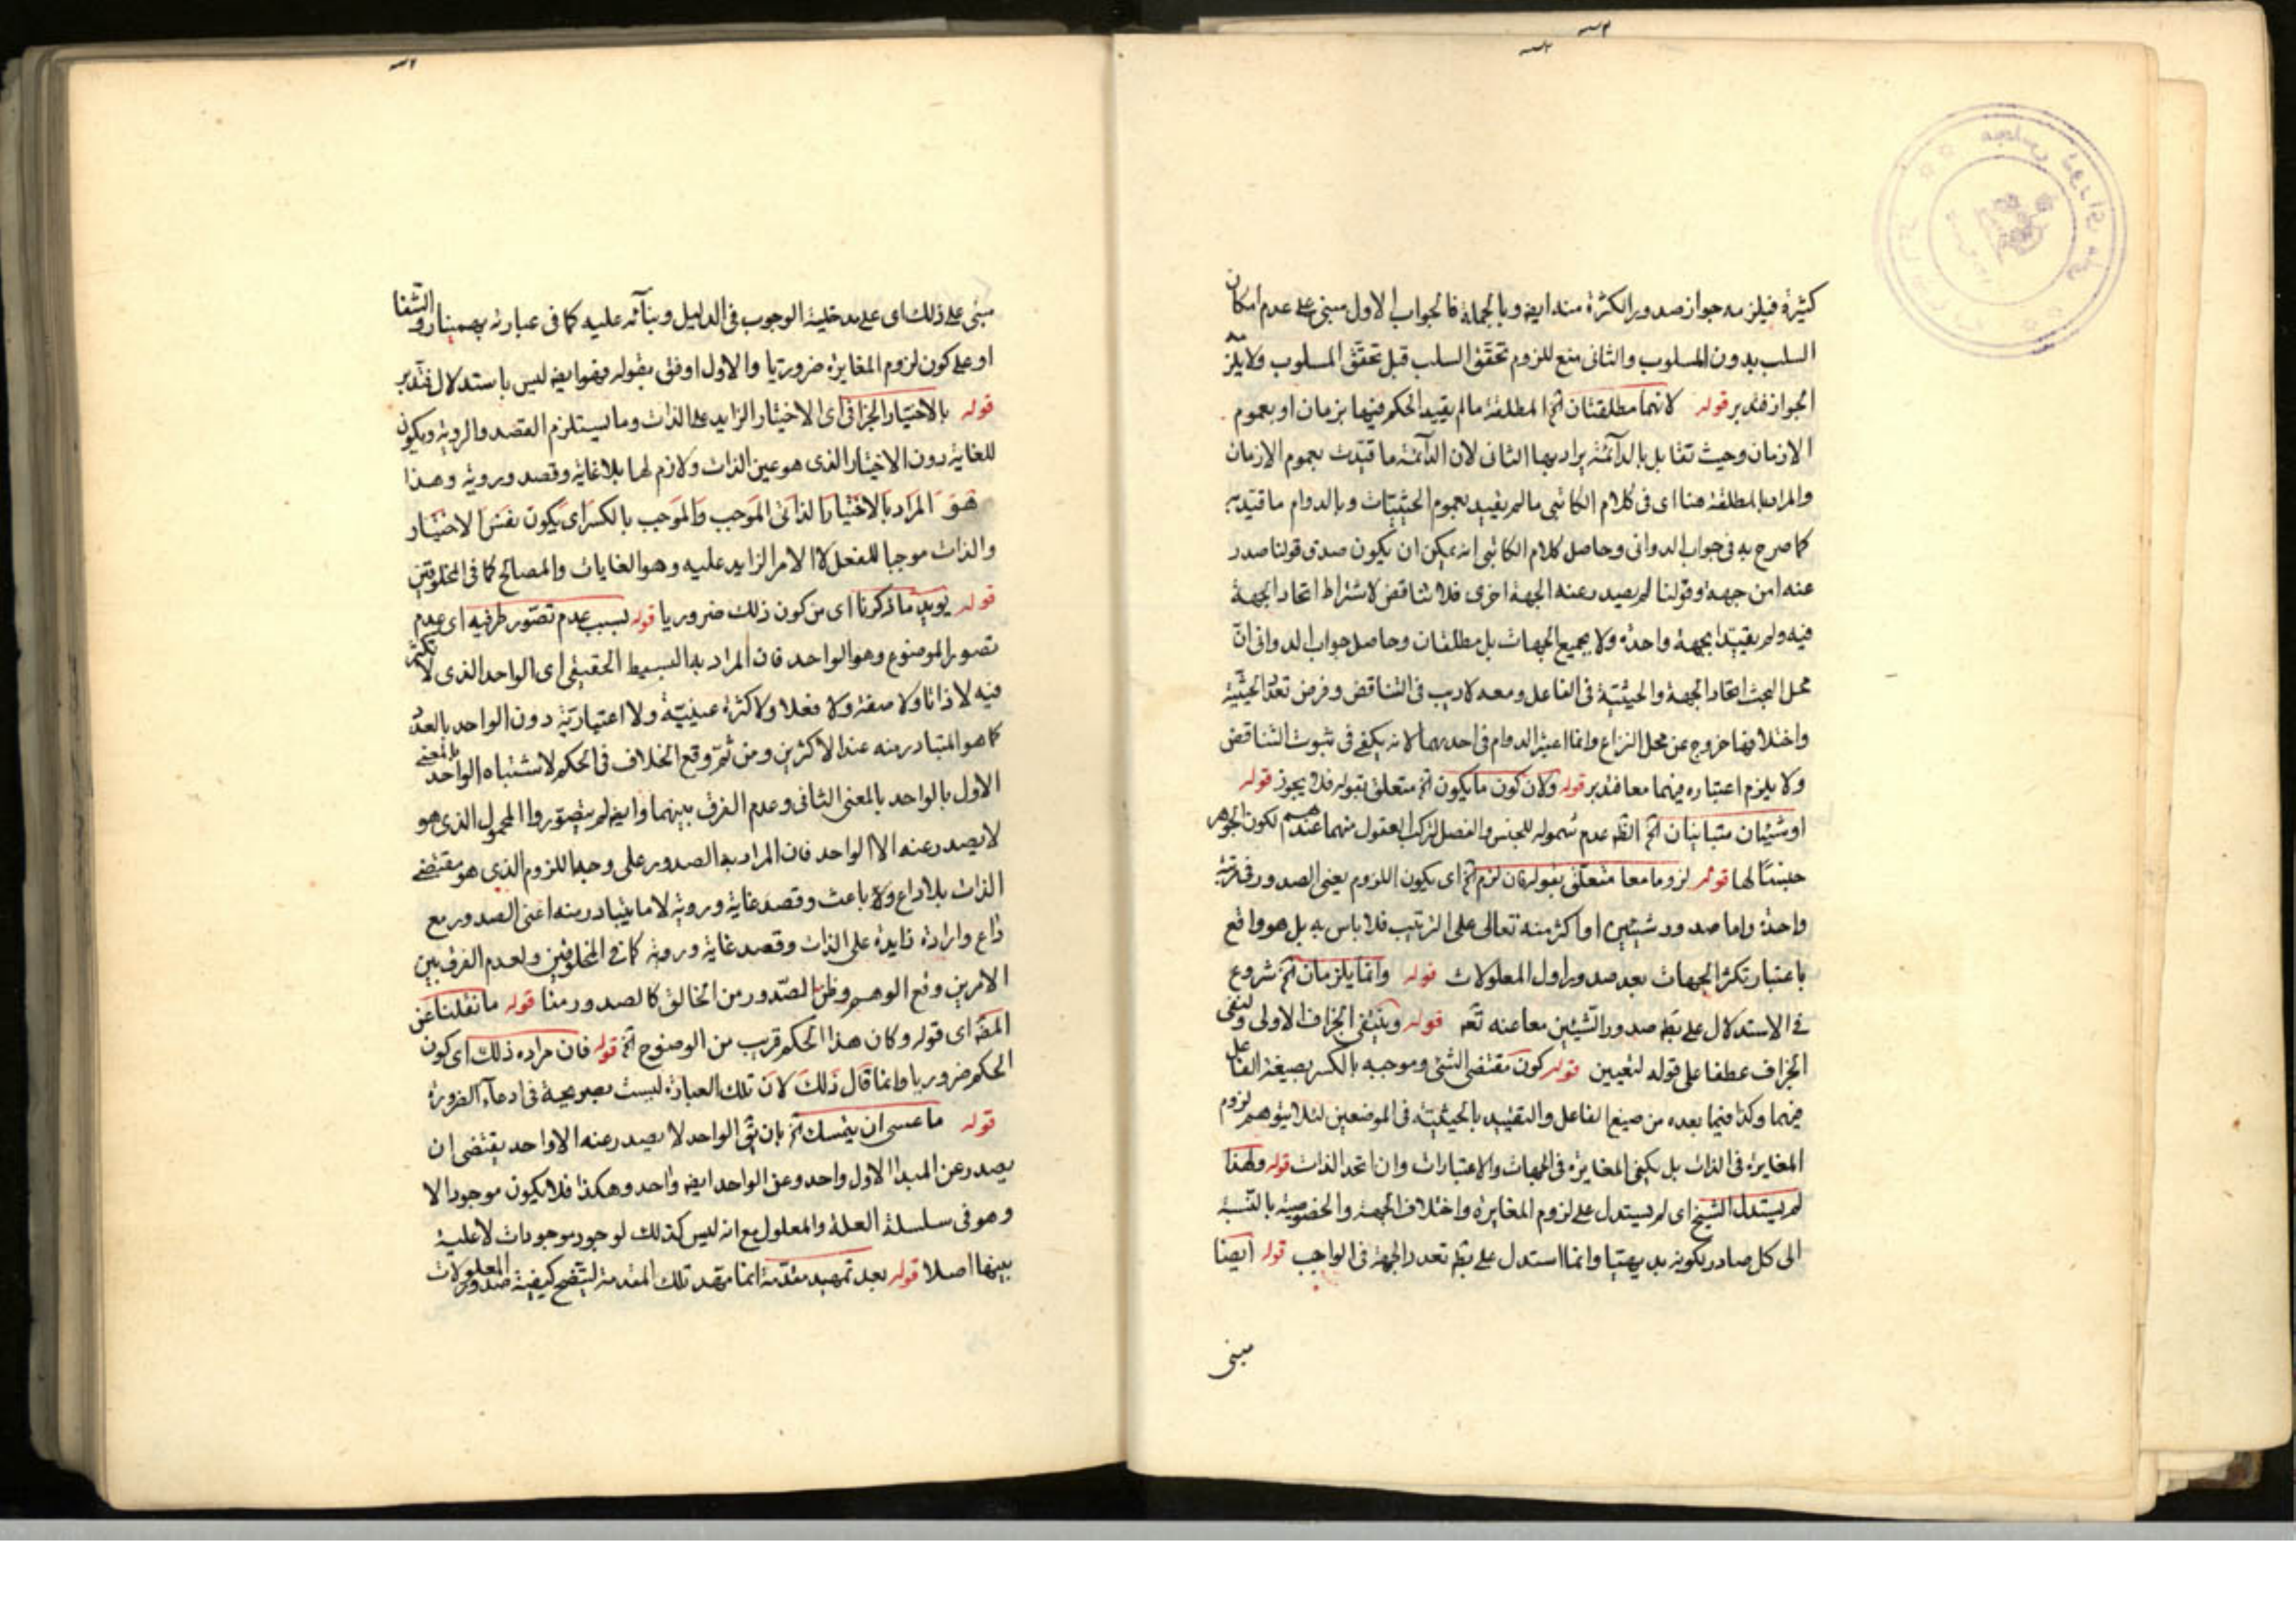 كثيرة فيلزمه جواز صدور الكثرة منه ايضه وبالجملة فالجواب الاول مبنى على عدم امكان
السلب بدون المسلوب والثانى منع للزوم تحقق السلب قبل تحقق المسلوب ولا يلزمه
الجواز فتدبر قوله لانهما مطلقتان الخ المطلقة ما لم يقيد الحكم فيها بزمان او بعموم
الازمان وحيث تقابل بالدآئمة يراد بها الثانى لان الدآئمة ما قيدت بعموم الازمان
والمراد بالمطلقة هنا اى فى كلام الكاتبى ما لم يقيد بعموم الحيثيات وبالدوام ما قيد به
كما صرح به فى جواب الدوانى وحاصل كلام الكاتبى انه يمكن ان يكون صدق قولنا صدر
عنه ا من جهة وقولنا لم يصدر عنه الجهة اخرى فلا تناقض لاشتراط اتحاد الجهة
فيه ولم يقيدا بجهة واحدة ولا بجميع الجهات بل مطلقتان وحاصل جواب الدوانى انّ
محل البحث اتحاد الجهة والحيثية فى الفاعل ومعه لا ريب فى التناقض وفرض تعدّد الحيثية
واختلافها خروج عن محل النزاع وانما اعتبر الدوام فى احديهما لانه يكفى فى ثبوت التناقض
ولا يلزم اعتباره فيهما معا فتدبر قوله ولان كون ما يكون الخ متعلق بقوله فلا يجوز قوله
او شيئان متباينان الخ الظه عدم شموله للجنس والفصل لتركب العقول منهما عندهم لكون الجوهر
جنسًا لها قوله لزوما معا متعلق بقوله فان لزم الخ اى يكون اللزوم يعنى الصدور فى مرتبة
واحدة واما صدور شيئين او اكثر منه تعالى على الترتيب فلا باس به بل هو واقع
باعتبار تكثر الجهات بعد صدور اول المعلولات قوله وانما يلزمان الخ شروع
فى الاستدلال على بطه صدور الشيئين معا عنه تعه قوله وينبغى الجزاف الاولى ولنفى
الجزاف عطفا على قوله لتعيين قوله كون مقتضى الشئ وموجبه بالكسر بصيغة الفاعل
فيهما وكذا فيما بعده من صيغ الفاعل والتقييد بالحيثية فى الموضعين لئلا يتوهم لزوم
المغايرة فى الذات بل يكفى المغايرة فى الجهات والاعتبارات وان اتحد الذات قوله ولهذا
لم يستدل الشيخ اى لم يستدل على لزوم المغايرة واختلاف الجهة والخصوصية بالنسبة
الى كل صادر بكونه بديهيا وانما استدل على بطه تعدد الجهة فى الواجب قوله ايضا
مبنى
مبنى على ذلك اى على مدخلية الوجوب فى الدليل وبنآئه عليه كما فى عبارته بهمنيار والشفا
او على كون لزوم المغايرة ضروريا والاول اوفق بقوله فهو ايضه ليس باستدلال فتدبر
قوله بالاختيار الجزافى اى الاختيار الزايد على الذات وما يستلزم القصد والروية ويكون
للغاية دون الاختيار الذى هو عين الذات ولازم لها بلا غاية وقصد وروية وهذا
هو المراد بالاختيار الذاتى الموجب والموجب بالكسر اى يكون نفس الاختيار
والذات موجبا للفعل لا الامر الزايد عليه وهو الغايات والمصالح كما فى المخلوقين
قوله يويد ما ذكرنا اى من كون ذلك ضروريا قوله بسبب عدم تصور طرفيه اى عدم
تصور الموضوع وهو الواحد فان المراد به البسيط الحقيقى اى الواحد الذى لا تكثر
فيه لا ذاتا ولا صفة ولا فعلا ولا كثرة عينيّة ولا اعتبارية دون الواحد بالعدد
كما هو المتبادر منه عند الاكثرين ومن ثم وقع الخلاف فى الحكم لاشتباه الواحد بالمعنى
الاول بالواحد بالمعنى الثانى وعدم الفرق بينهما وايضه لم يتصوروا المحمول الذى هو
لا يصدر عنه الا الواحد فان المراد به الصدور على وجه اللزوم الذى هو مقتضى
الذات بلا داع ولا باعث وقصد غاية وروية لا ما يتبادر منه اعنى الصدور مع
داع وارادة زايدة على الذات وقصد غاية وروية كما فى المخلوقين ولعدم الفرق بين
الامرين وقع الوهم وظن الصّدور من الخالق كالصدور منا قوله ما نقلنا عن
المصه اى قوله وكان هذا الحكم قريب من الوضوح الخ قوله فان مراده ذلك اى كون
الحكم ضروريا وانما قال ذلك لان تلك العبارة ليست بصريحة فى ادعآء الضرورة
قوله ما عسى ان يتمسك الخ بان يق الواحد لا يصدر عنه الا واحد يقتضى ان
يصدر عن المبدا الاول واحد وعن الواحد ايضه واحد وهكذا فلا يكون موجود الا
وهو فى سلسلة العلة والمعلول مع انه ليس كذلك لوجود موجودات لا علية
بينها اصلا قوله بعد تمهيد مقدّمة انما مهد تلك المقدمة ليتضح كيفية صدور المعلولات